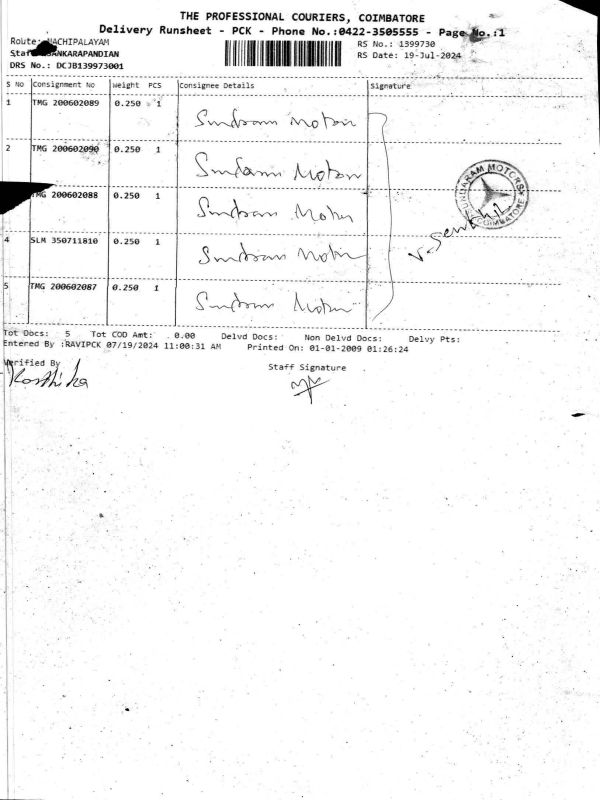 THE PROFESSIONAL COURIERS, COIMBATORE
Delivery Runsheet - PCK - Phone No.:0422-3505555 - Page No.:1
Route: MACHIPALAYAM
RS No.: 1399730
SANKARAPANDIAN
RS Date: 19-Jul-2024
DRS No.: DCJB139973001
S No Consignment No Weight PCS Consignee Details Signature
1 TMG 200602089 0.250 1 Sundram Motors
2 TMG 200602090 0.250 1 Sundaram Motors
TMG 200602088 0.250 1 Sundram Motors
4 SLM 350711810 0.250 1 Sundram Motors
5 TMG 200602087 0.250 1 Sundram Motors
SUNDARAM MOTORS
COIMBATORE
V. Senthil
Tot Docs: 5 Tot COD Amt: 0.00 Delvd Docs: Non Delvd Docs: Delvy Pts:
Entered By :RAVIPCK 07/19/2024 11:00:31 AM Printed On: 01-01-2009 01:26:24
Verified By
Staff Signature
Karthika